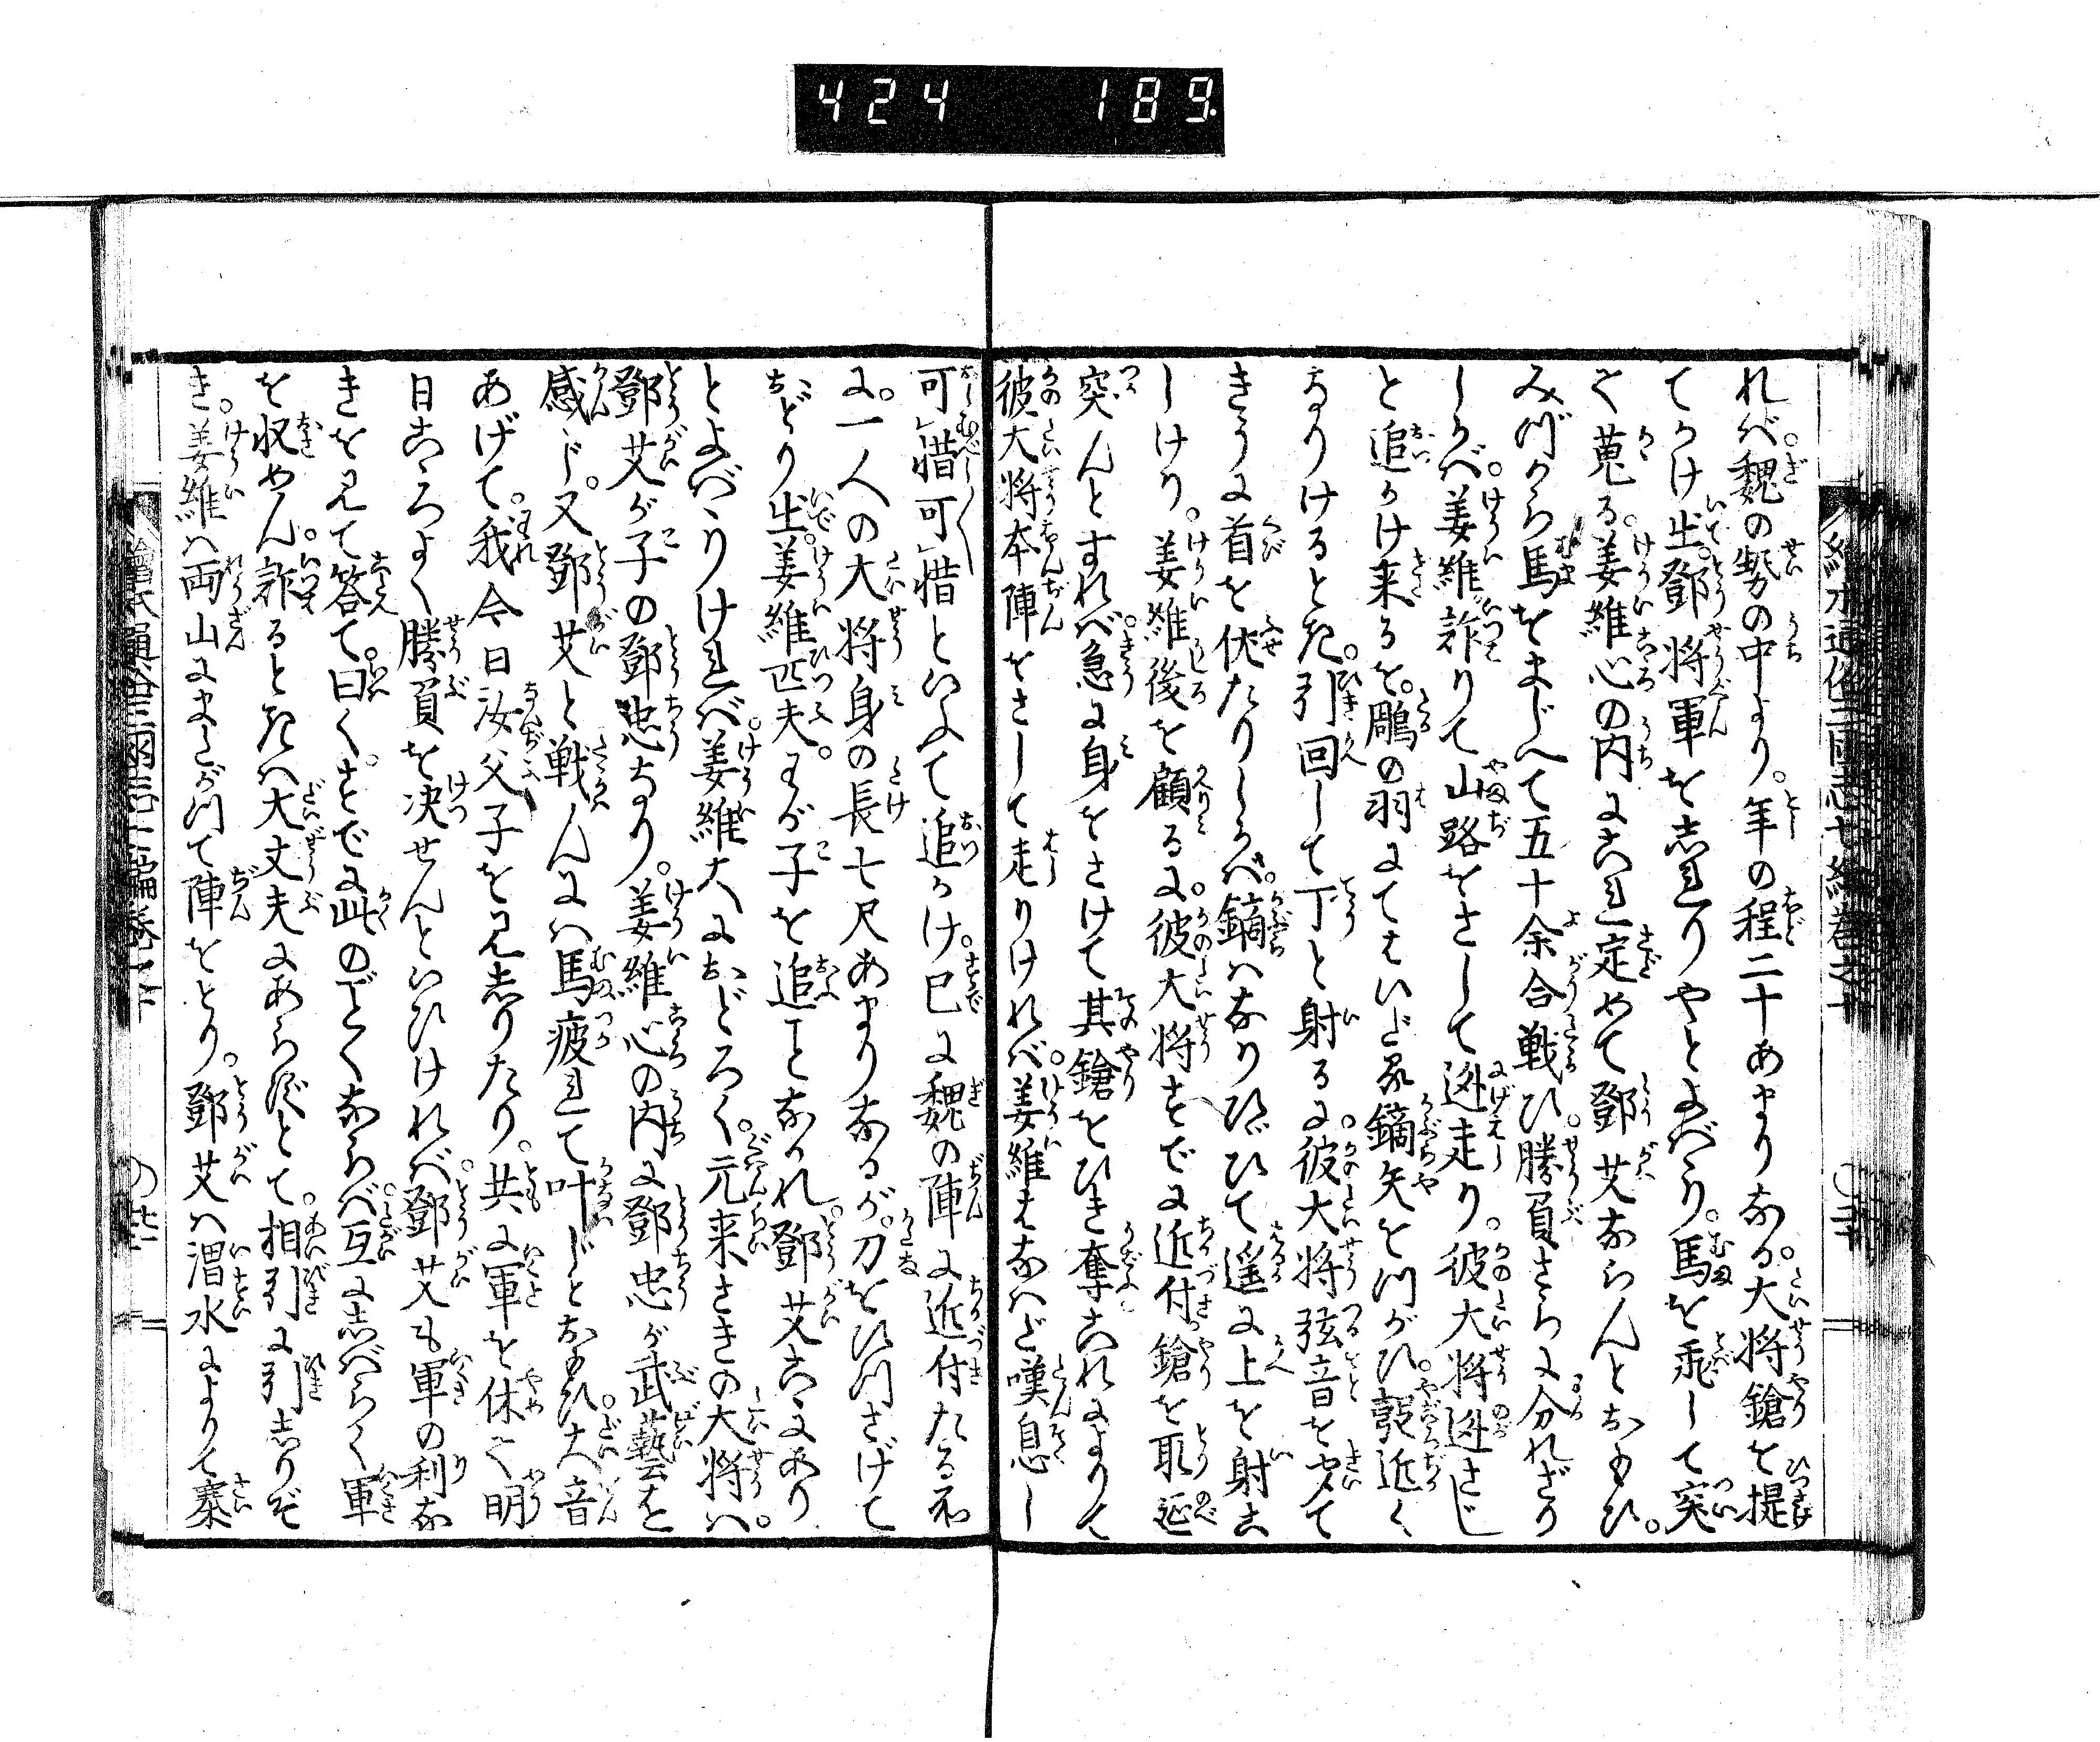 424 189
れば。魏の勢の中より。年の程二十あまりなる。大将鎗を提
てかけ出。鄧将軍をしれりやとよばゝり。馬を飛して突
て蒐る。姜維心の内にこれ定めて鄧艾ならんとおもひ。
みづから馬をまじへて五十余合戦ひ。勝負さらに分れざり
しかば。姜維詐りて山路をさして逃走り。彼大将逃さじ
と追かけ来るを。鵰の羽にてはいだる鏑矢をつがひ。彀近く
なりけるとき。引回して丁と射るに。彼大将弦音をきいて
きうに首を伏たりしかば。鏑はなりひゞひて遥に上を射こ
しけり。姜維後を顧るに。彼大将すでに近付鎗を取延
突んとすれば。急に身をさけて其鎗をひき奪。これによりて
彼大将本陣をさして走りければ。姜維はなはだ嘆息し
可惜可惜といふて追かけ。已に魏の陣に近付たる所
に。一人の大将身の長七尺あまりなるが。刀をひつさげて
おどり出。姜維匹夫。わが子を追ことなかれ。鄧艾こゝにあり
とよばゝりければ。姜維大におどろく。元来さきの大将は。
鄧艾が子の鄧忠なり。姜維心の内に鄧忠が武藝を
感じ。又鄧艾と戦んには馬疲れて叶じとおもひ。大音
あげて。我今日汝父子を見しりたり。共に軍を休て明
日こゝろよく勝負を决せんといひければ。鄧艾も軍の利な
きを見て答て。曰く。すでに此のごとくならば。互にしばらく軍
を収めん。詐るときは大丈夫にあらずとて。相引に引しりぞ
き。姜維は両山にまたがつて陣をとり。鄧艾は渭水によりて寨